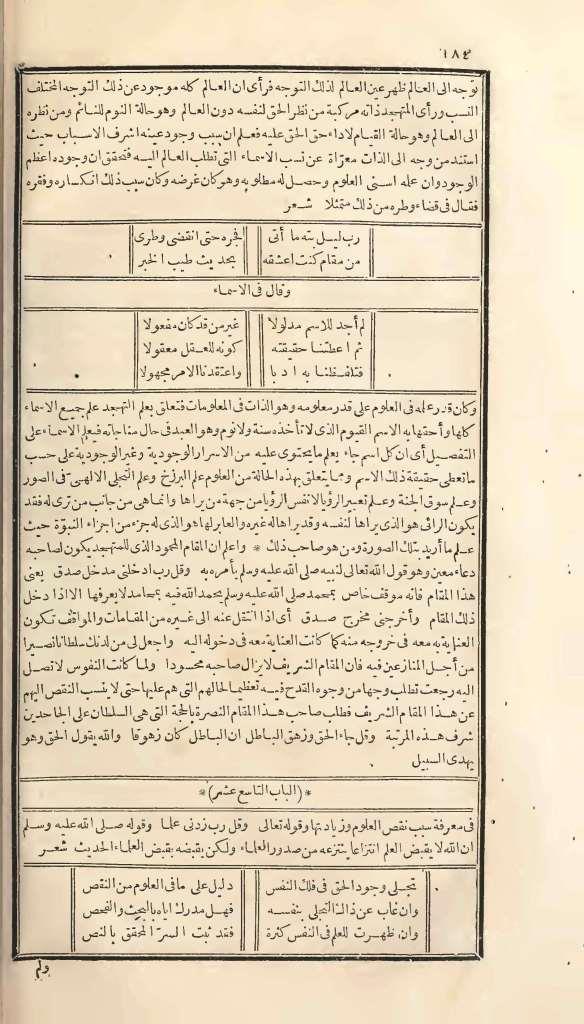 ١٨٤
توجه الى العالم ظهر عين العالم لذلك التوجه فرأى ان العالم كله موجود عن ذلك التوجه المختلف
النسب ورأى المتهجد ذاته مركبة من نظر الحق لنفسه دون العالم وهو حالة النوم للنائم ومن نظره
الى العالم وهو حالة القيام لاداء حق الحق عليه فعلم ان سبب وجود عينه اشرف الاسباب حيث
استند من وجه الى الذات معرّاة عن نسب الاسماء التى تطلب العالم اليه فتحقق ان وجوده اعظم
الوجود وان علمه اسنى العلوم وحصل له مطلوبه وهو كان غرضه وكان سبب ذلك انكساره وفقره
فقال فى قضاء وطره من ذلك متمثلا شعر
رب ليل بته ما أتى فجره حتى انقضى وطرى
من مقام كنت اعشقه بحديث طيب الخبر
وقال فى الاسماء
لم أجد للاسم مدلولا غير من قد كان مفعولا
ثم اعطتنا حقيقته كونه للعقل معقولا
فتلفظنا به ادبا واعتقدنا الامر مجهولا
وكان قدر علمه فى العلوم على قدر معلومه وهو الذات فى المعلومات فتعلق بعلم التهجد علم جميع الاسماء
كلها وأحقها به الاسم القيوم الذى لا تأخذه سنة ولا نوم وهو العبد فى حال مناجاته فيعلم الاسماء على
التفصيل أى ان كل اسم جاء يعلم ما يحتوى عليه من الاسرار الوجودية وغير الوجودية على حسب
ما تعطى حقيقة ذلك الاسم ومما يتعلق بهذه الحالة من العلوم علم البرزخ وعلم التجلى الالهى فى الصور
وعلم سوق الجنة وعلم تعبير الرؤيا لا نفس الرؤيا من جهة من يراها وانما هى من جانب من ترى له فقد
يكون الرائى هو الذى يراها لنفسه وقد يراها له غيره والعابر لها هو الذى له جزء من اجزاء النبوّة حيث
علم ما أريد بتلك الصورة ومن هو صاحب ذلك * واعلم ان المقام المحمود الذى للمتهجد يكون لصاحبه
دعاء معين وهو قول الله تعالى لنبيه صلى الله عليه وسلم يأمره به وقل رب ادخلنى مدخل صدق يعنى
هذا المقام فانه موقف خاص بمحمد صلى الله عليه وسلم يحمد الله فيه بمحامد لا يعرفها الا اذا دخل
ذلك المقام وأخرجنى مخرج صدق أى اذا انتقل عنه الى غيره من المقامات والمواقف تكون
العناية به معه فى خروجه منه كما كانت العناية معه فى دخوله اليه واجعل لى من لدنك سلطانا نصيرا
من أجل المنازعين فيه فان المقام الشريف لا يزال صاحبه محسودا ولما كانت النفوس لا تصل
اليه رجعت تطلب وجها من وجوه القدح فيه تعظيما لحالهم التى هم عليها حتى لا ينسب النقص اليهم
عن هذا المقام الشريف فطلب صاحب هذا المقام النصرة بالحجة التى هى السلطان على الجاحدين
شرف هذه المرتبة وقل جاء الحق وزهق الباطل ان الباطل كان زهوقا والله يقول الحق وهو
يهدى السبيل
*(الباب التاسع عشر)*
فى معرفة سبب نقص العلوم وزيادتها وقوله تعالى وقل رب زدنى علما وقوله صلى الله عليه وسلم
ان الله لا يقبض العلم انتزاعا ينتزعه من صدور العلماء ولكن يقبضه بقبض العلماء الحديث شعر
تجلى وجود الحق فى فلك النفس دليل على ما فى العلوم من النقص
وان غاب عن ذاك التجلى بنفسه فهل مدرك اياه بالبحث والفحص
وان ظهرت للعلم فى النفس كثرة فقد ثبت الستر المحقق بالنص
ولم